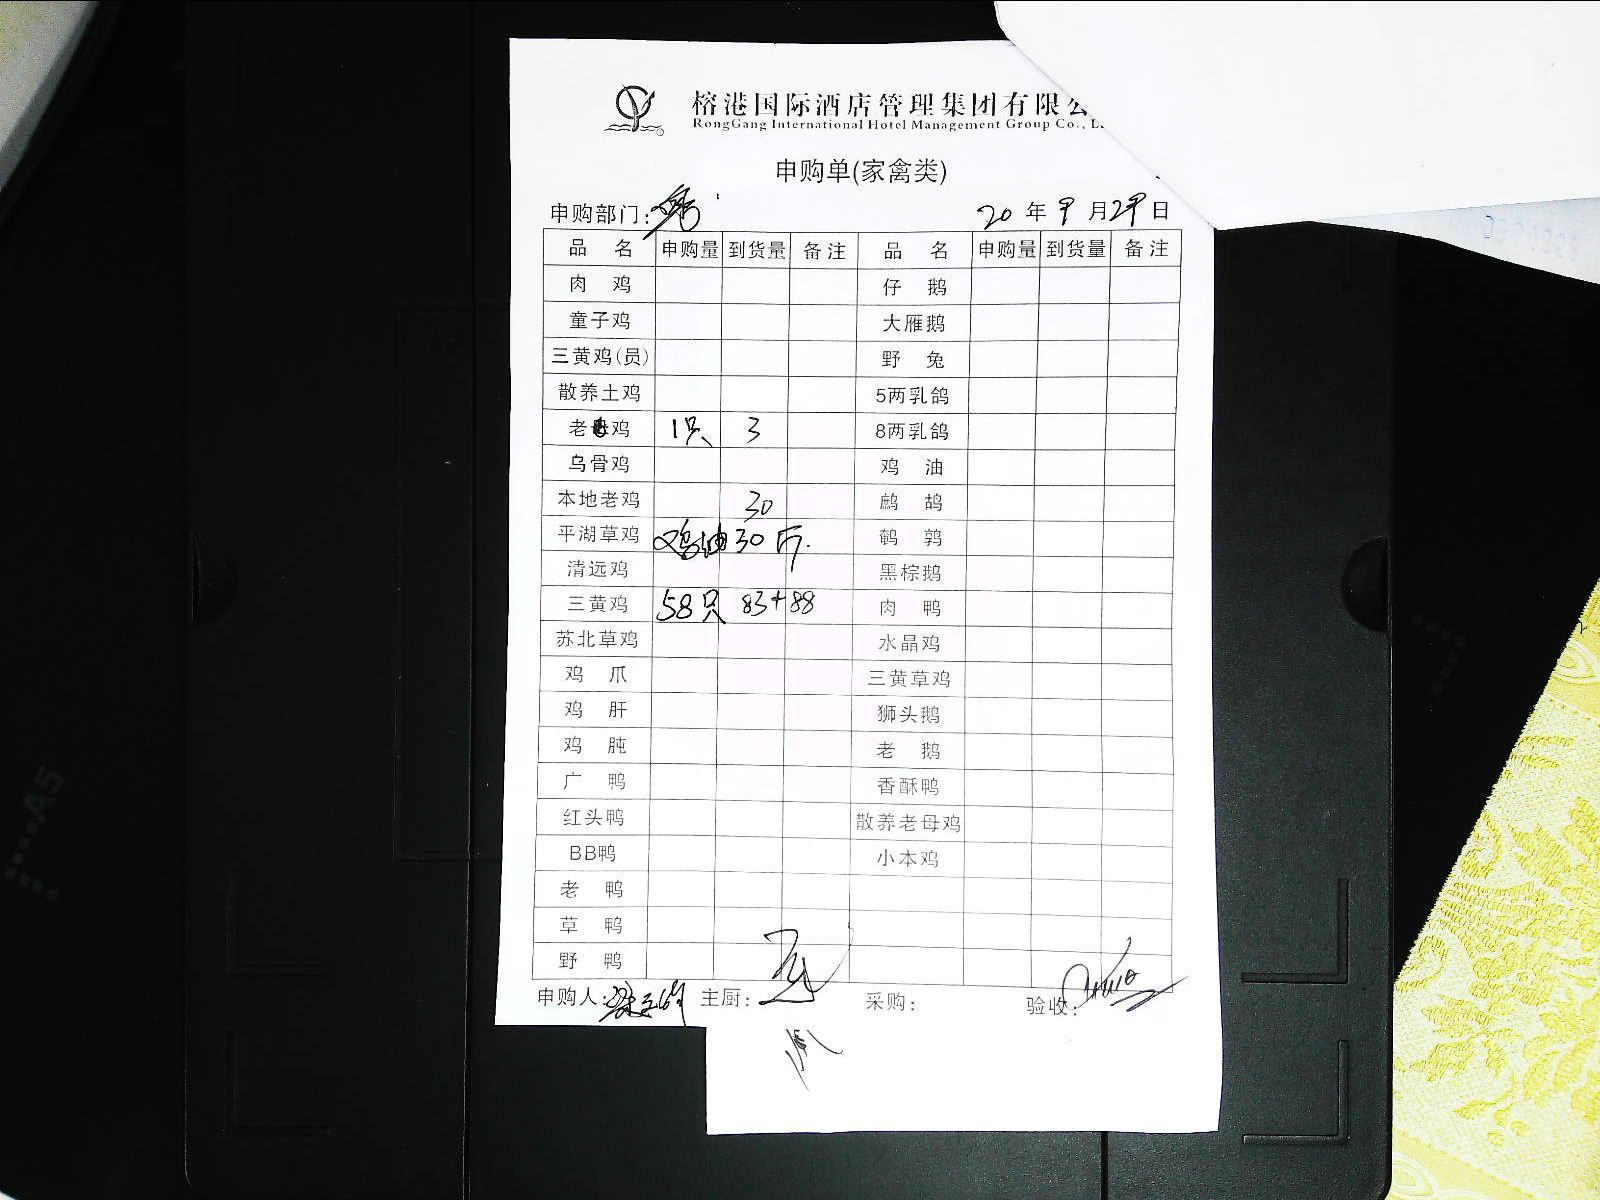 榕港国际酒店管理集团有限公
RongGang International Hotel Management Group Co., L
申购单(家禽类)
申购部门: 20 年 9 月 29 日
品 名 申购量 到货量 备注 品 名 申购量 到货量 备注
肉 鸡 仔 鹅
童子鸡 大雁鹅
三黄鸡(员) 野 兔
散养土鸡 5两乳鸽
老母鸡 1只 3 8两乳鸽
乌骨鸡 鸡 油
本地老鸡 30 鹧 鸪
平湖草鸡 鸡油30斤. 鹌 鹑
清远鸡 黑棕鹅
三黄鸡 58只 83+88 肉 鸭
苏北草鸡 水晶鸡
鸡 爪 三黄草鸡
鸡 肝 狮头鹅
鸡 肫 老 鹅
广 鸭 香酥鸭
红头鸭 散养老母鸡
BB鸭 小本鸡
老 鸭
草 鸭
野 鸭
申购人: 主厨: 采购: 验收:
A5